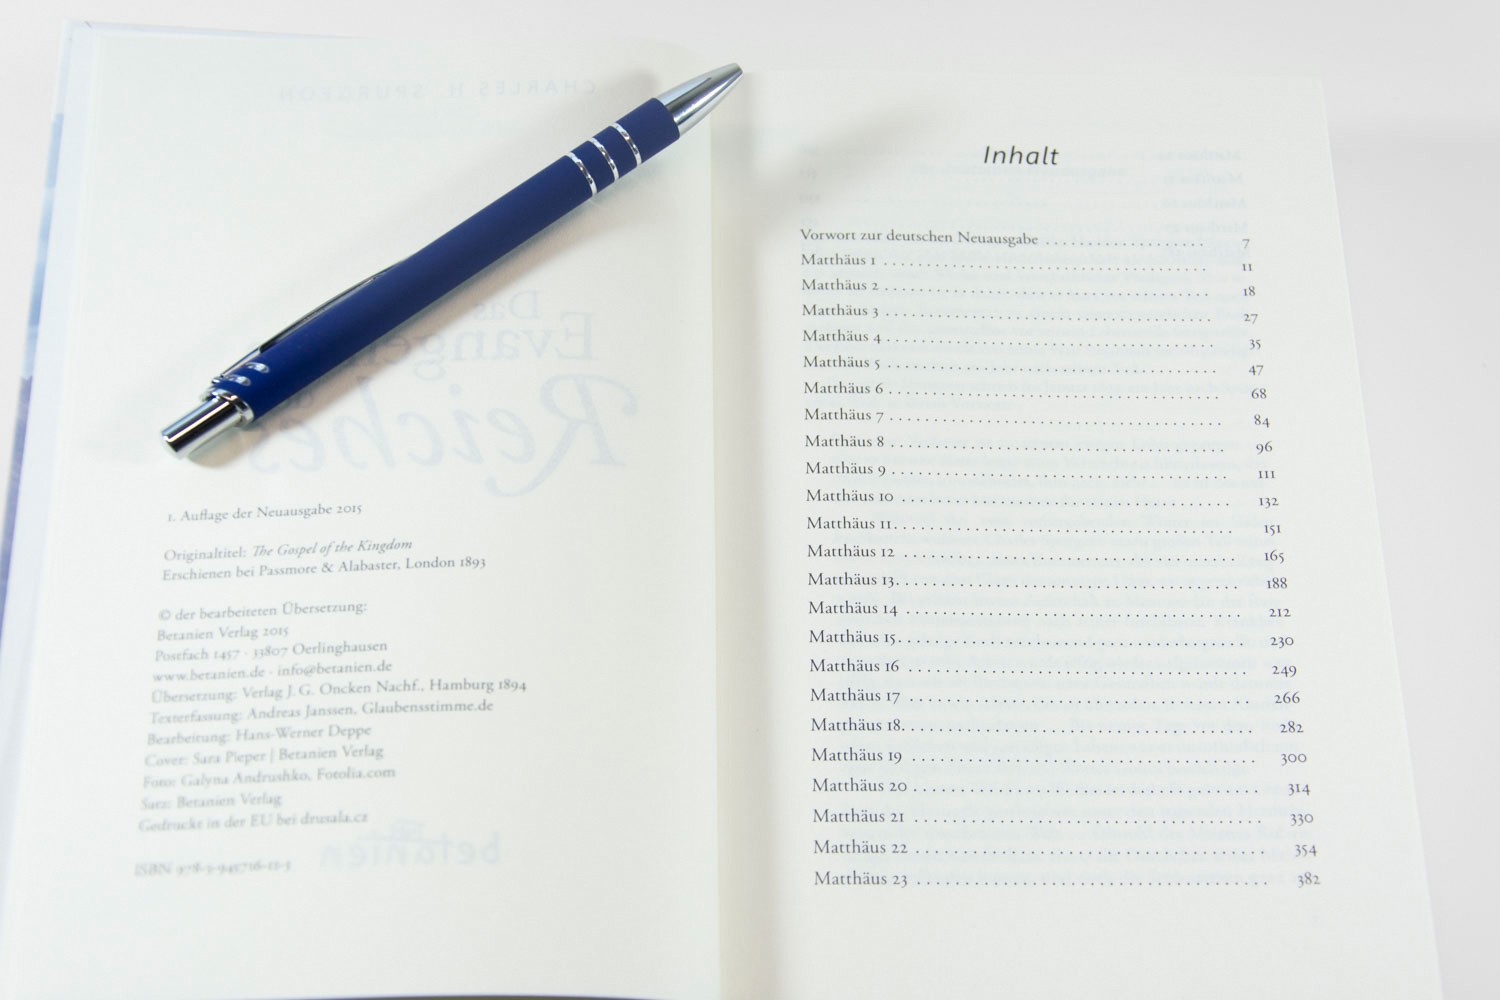 1. Auflage der Neuausgabe 2015
Originaltitel: The Gospel of the Kingdom
Erschienen bei Passmore & Alabaster, London 1893
© der bearbeiteten Übersetzung:
Betanien Verlag 2015
Postfach 1457 · 33807 Oerlinghausen
www.betanien.de · info@betanien.de
Übersetzung: Verlag J. G. Oncken Nachf., Hamburg 1894
Texterfassung: Andreas Janssen, Glaubensstimme.de
Bearbeitung: Hans-Werner Deppe
Cover: Sara Pieper | Betanien Verlag
Foto: Galyna Andrushko, Fotolia.com
Satz: Betanien Verlag
Gedruckt in der EU bei drusala.cz
ISBN
Inhalt
Vorwort zur deutschen Neuausgabe . . . . . . . . . . . . . . . . . . . 7
Matthäus 1 . . . . . . . . . . . . . . . . . . . . . . . . . . . . . . . . . . . . . . 11
Matthäus 2 . . . . . . . . . . . . . . . . . . . . . . . . . . . . . . . . . . . . . . 18
Matthäus 3 . . . . . . . . . . . . . . . . . . . . . . . . . . . . . . . . . . . . . . 27
Matthäus 4 . . . . . . . . . . . . . . . . . . . . . . . . . . . . . . . . . . . . . . 35
Matthäus 5 . . . . . . . . . . . . . . . . . . . . . . . . . . . . . . . . . . . . . . 47
Matthäus 6 . . . . . . . . . . . . . . . . . . . . . . . . . . . . . . . . . . . . . . 68
Matthäus 7 . . . . . . . . . . . . . . . . . . . . . . . . . . . . . . . . . . . . . . 84
Matthäus 8 . . . . . . . . . . . . . . . . . . . . . . . . . . . . . . . . . . . . . . 96
Matthäus 9 . . . . . . . . . . . . . . . . . . . . . . . . . . . . . . . . . . . . . . 111
Matthäus 10 . . . . . . . . . . . . . . . . . . . . . . . . . . . . . . . . . . . . . 132
Matthäus 11. . . . . . . . . . . . . . . . . . . . . . . . . . . . . . . . . . . . . . 151
Matthäus 12 . . . . . . . . . . . . . . . . . . . . . . . . . . . . . . . . . . . . . 165
Matthäus 13. . . . . . . . . . . . . . . . . . . . . . . . . . . . . . . . . . . . . . 188
Matthäus 14 . . . . . . . . . . . . . . . . . . . . . . . . . . . . . . . . . . . . . 212
Matthäus 15. . . . . . . . . . . . . . . . . . . . . . . . . . . . . . . . . . . . . . 230
Matthäus 16 . . . . . . . . . . . . . . . . . . . . . . . . . . . . . . . . . . . . . 249
Matthäus 17 . . . . . . . . . . . . . . . . . . . . . . . . . . . . . . . . . . . . . 266
Matthäus 18. . . . . . . . . . . . . . . . . . . . . . . . . . . . . . . . . . . . . . 282
Matthäus 19 . . . . . . . . . . . . . . . . . . . . . . . . . . . . . . . . . . . . . 300
Matthäus 20 . . . . . . . . . . . . . . . . . . . . . . . . . . . . . . . . . . . . . 314
Matthäus 21 . . . . . . . . . . . . . . . . . . . . . . . . . . . . . . . . . . . . . 330
Matthäus 22 . . . . . . . . . . . . . . . . . . . . . . . . . . . . . . . . . . . . . 354
Matthäus 23 . . . . . . . . . . . . . . . . . . . . . . . . . . . . . . . . . . . . . 382